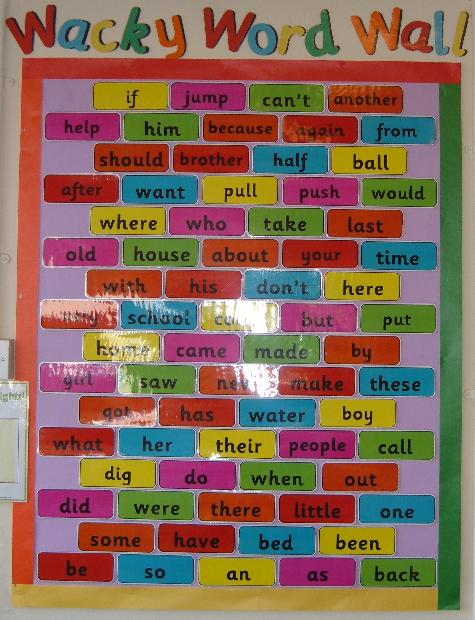 Wacky Word Wall
if jump can't another
help him because again from
should brother half ball
after want pull push would
where who take last
old house about your time
with his don't here
school but put
home came made by
girl saw make these
got has water boy
what her their people call
dig do when out
did were there little one
some have bed been
be so an as back